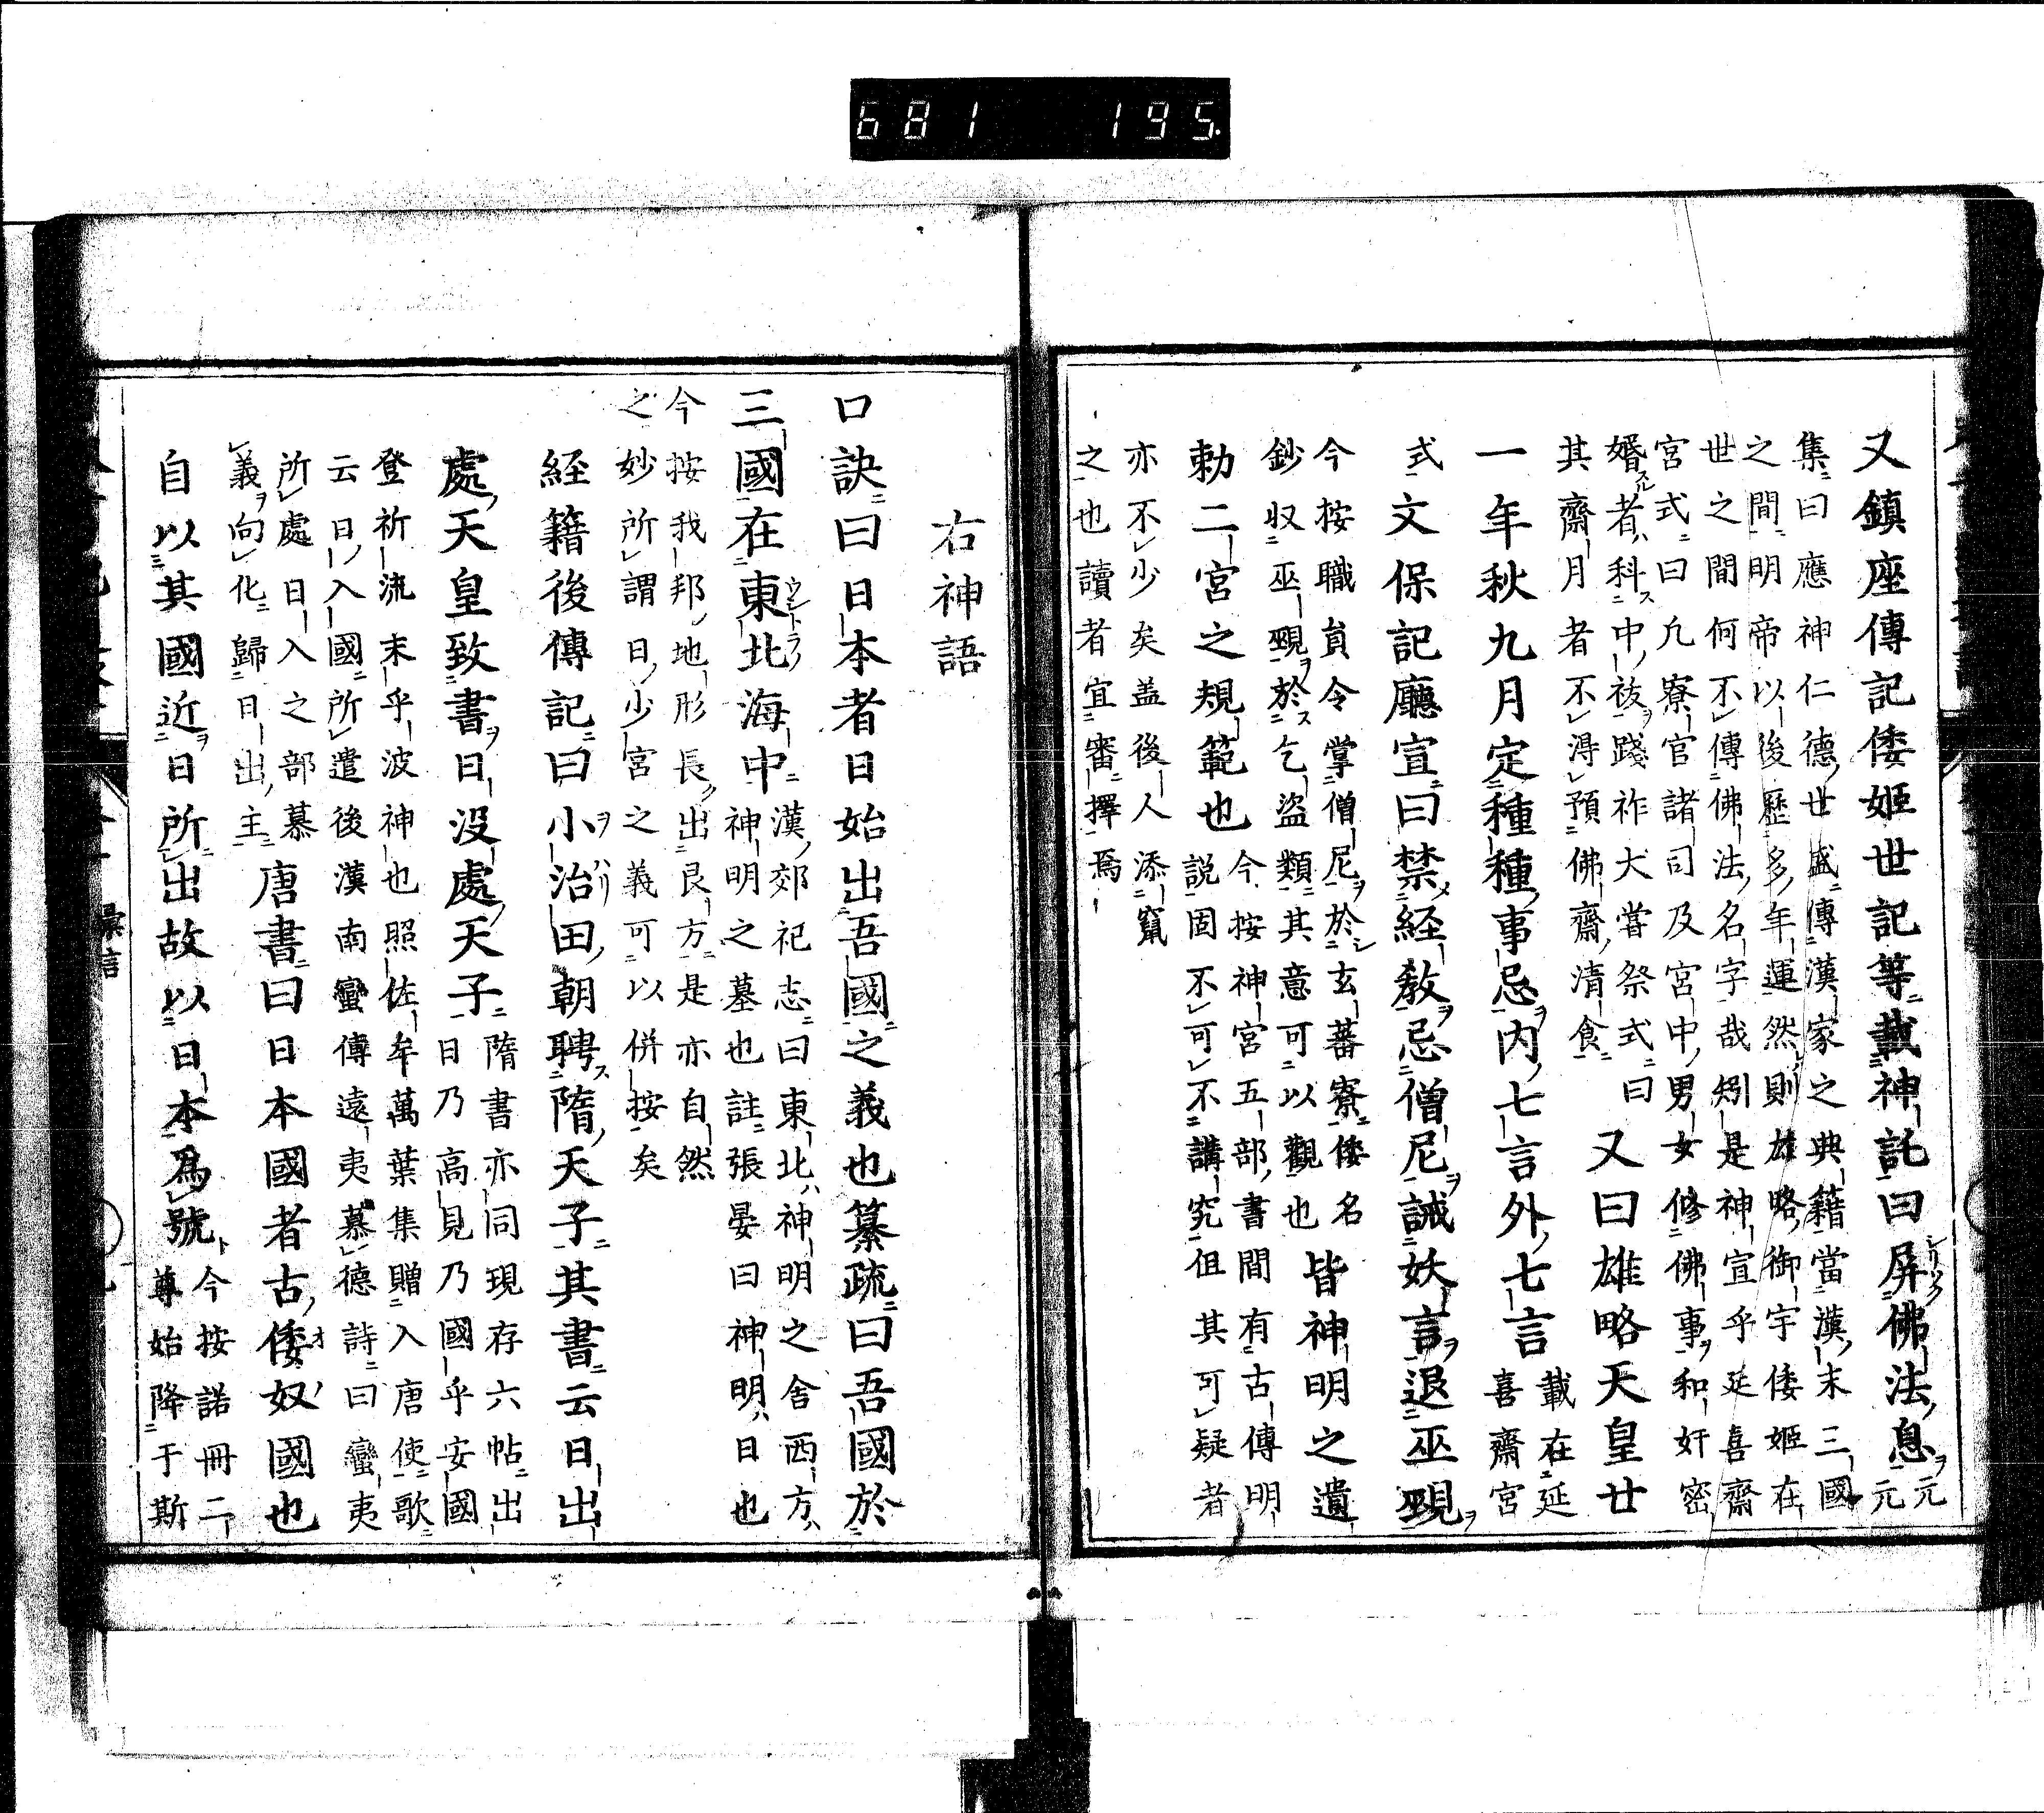 681 195.
又鎮座傳記倭姬世記等載神託曰屏佛法息元
元
集曰應神仁德世盛傳漢家之典籍當漢末三國
之間明帝以後歷多年運然則雄略御宇倭姬在
世之間何不傳佛法名字哉矧是神宣乎延喜齋
宮式曰凡寮官諸司及宮中男女修佛事和奸密
婚者科中祓踐祚大嘗祭式曰
其齋月者不得預佛齋清食
又曰雄略天皇廿
一年秋九月定種種事忌內七言外七言
載在延
喜齋宮
式
文保記廳宣曰禁経教忌僧尼誡妖言退巫覡
今按職員令掌僧尼於玄蕃寮倭名
鈔収巫覡於乞盜類其意可以觀也
皆神明之遺
勅二宮之規範也
今按神宮五部書間有古傳明
説固不可不講究但其可疑者
亦不少矣盖後人添竄
之也讀者宜審擇焉
右神語
口訣曰日本者日始出吾國之義也纂疏曰吾國於
三國在東北海中
漢郊祀志曰東北神明之舍西方
神明之墓也註張晏曰神明日也
今按我邦地形長出艮方是亦自然
之妙所謂日少宮之義可以併按矣
経籍後傳記曰小治田朝聘隋天子其書云日出
處天皇致書日沒處天子
隋書亦同現存六帖出
日乃高見乃國乎安國
登祈流末乎波神也照佐牟萬葉集贈入唐使歌
云日入國所遣後漢南蠻傳遠夷慕德詩曰蠻夷
所處日入之部慕
義向化歸日出主
唐書曰日本國者古倭奴國也
自以其國近日所出故以日本為號
今按諾冊二
尊始降于斯